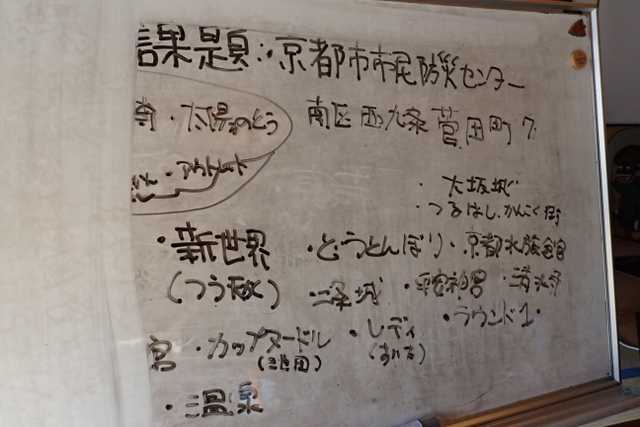 課題:京都市市民防災センター
・太陽のとう 南区西九条菅田町7
・アウトレット
・大坂城
・つるはし、かんこく街
・新世界 ・どうとんぼり ・京都水族館
(つう天かく) ・二条城 ・平安神宮 ・清水寺
宮 ・カップヌードル ・レディ
・ラウンド1
(池田)
・温泉